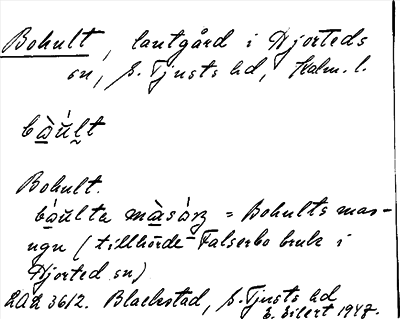 Bohult, lantgård i Hjorteds
sn, S. Tjusts hd, Kalm. l.
Bohult.
= Bohults mas-
ugn (tillhörde Falserbo bruk i
Hjorted sn)
362. Blackstad, S. Tjusts hd
E. Eilert 1947.